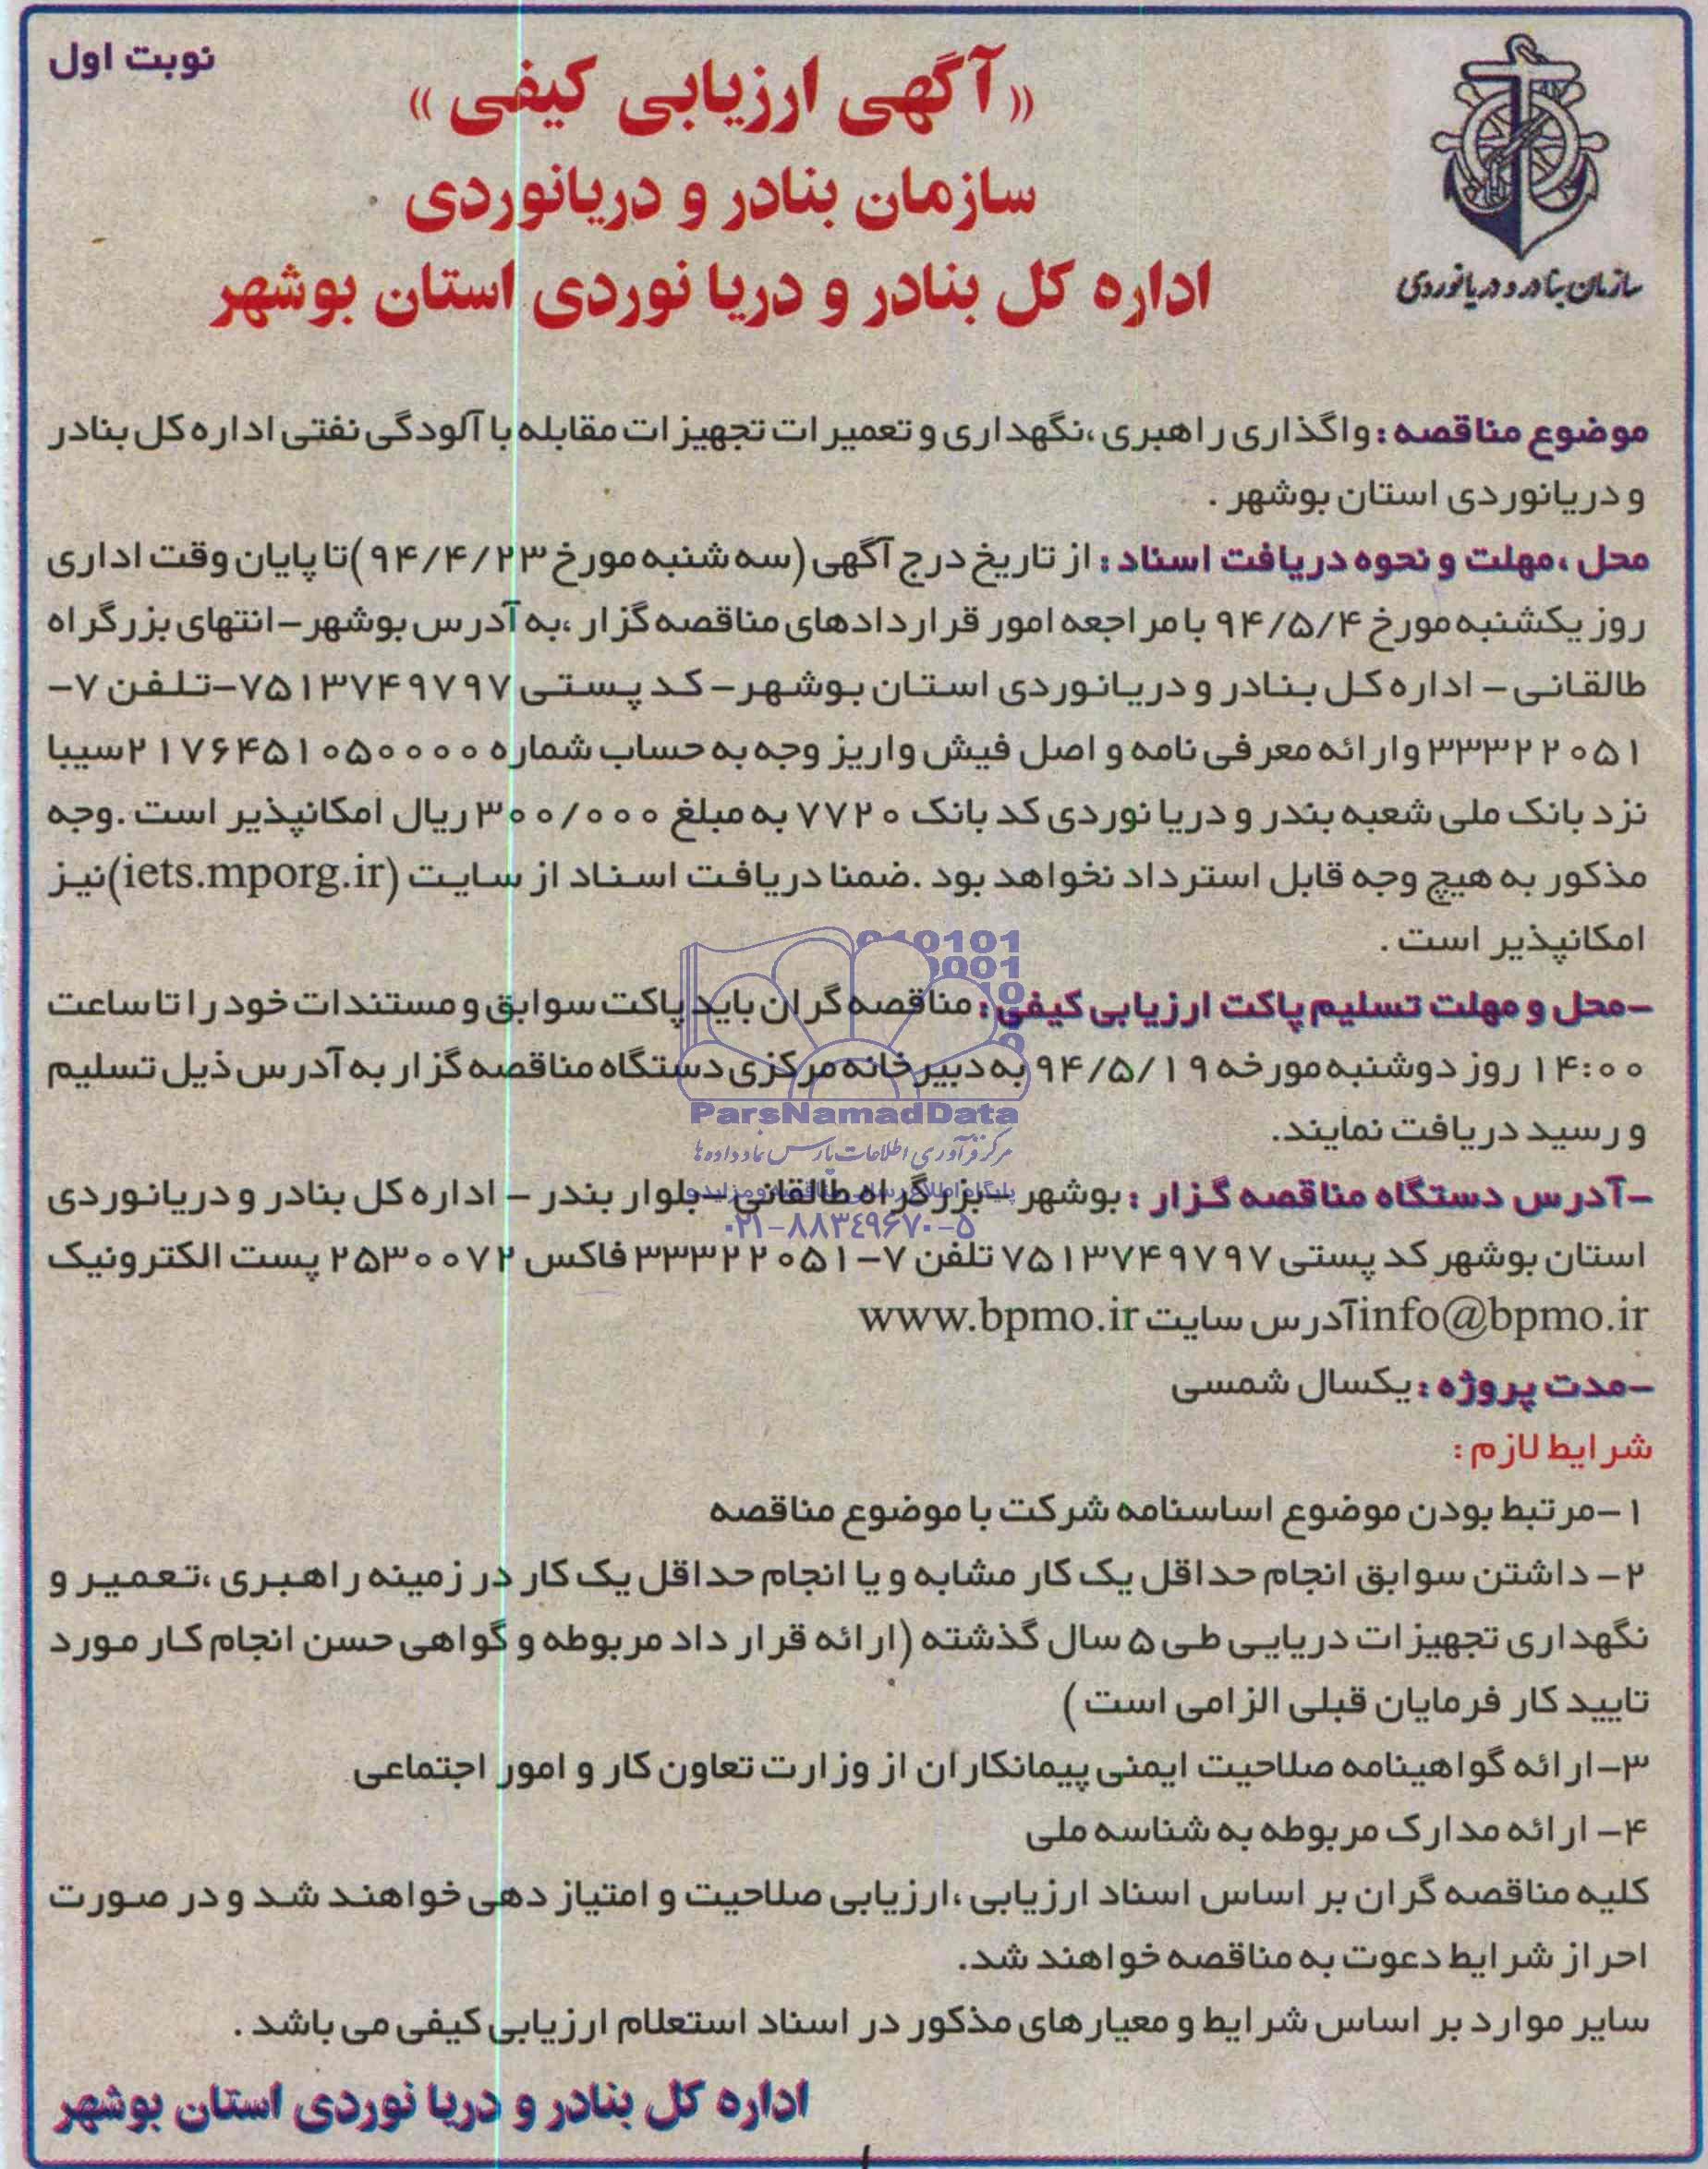 نوبت اول
« آگهی ارزیابی کیفی »
سازمان بنادر و دریانوردی
اداره کل بنادر و دریا نوردی استان بوشهر
سازمان بنادر و دریانوردی
موضوع مناقصه : واگذاری راهبری ،نگهداری و تعمیرات تجهیزات مقابله با آلودگی نفتی اداره کل بنادر
و دریانوردی استان بوشهر .
محل ،مهلت و نحوه دریافت اسناد : از تاریخ درج آگهی (سه شنبه مورخ ۹۴/۴/۲۳)تا پایان وقت اداری
روز یکشنبه مورخ ۹۴/۵/۴ با مراجعه امور قراردادهای مناقصه گزار ،به آدرس بوشهر–انتهای بزرگراه
طالقانی – اداره کل بنادر و دریانوردی استان بوشهر– کد پستی ۷۵۱۳۷۴۹۷۹۷–تلفن ۷–
۳۳۳۲۲۰۵۱ وارائه معرفی نامه و اصل فیش واریز وجه به حساب شماره ۲۱۷۶۴۵۱۰۵۰۰۰۰سیبا
نزد بانک ملی شعبه بندر و دریا نوردی کد بانک ۷۷۲۰ به مبلغ ۳۰۰/۰۰۰ ریال امکانپذیر است .وجه
مذکور به هیچ وجه قابل استرداد نخواهد بود .ضمنا دریافت اسناد از سایت (iets.mporg.ir)نیز
امکانپذیر است .
–محل و مهلت تسلیم پاکت ارزیابی کیفی: مناقصه گران باید پاکت سوابق و مستندات خود را تا ساعت
۱۴:۰۰ روز دوشنبه مورخه ۹۴/۵/۱۹ به دبیرخانه مرکزی دستگاه مناقصه گزار به آدرس ذیل تسلیم
و رسید دریافت نمایند.
–آدرس دستگاه مناقصه گزار : بوشهر – بزرگراه طالقانی –بلوار بندر – اداره کل بنادر و دریانوردی
استان بوشهر کد پستی ۷۵۱۳۷۴۹۷۹۷ تلفن ۷–۳۳۳۲۲۰۵۱ فاکس ۲۵۳۰۰۷۲ پست الکترونیک
info@bpmo.irآدرس سایت www.bpmo.ir
–مدت پروژه : یکسال شمسی
شرایط لازم :
۱–مرتبط بودن موضوع اساسنامه شرکت با موضوع مناقصه
۲– داشتن سوابق انجام حداقل یک کار مشابه و یا انجام حداقل یک کار در زمینه راهبری ،تعمیر و
نگهداری تجهیزات دریایی طی ۵ سال گذشته (ارائه قرار داد مربوطه و گواهی حسن انجام کار مورد
تایید کار فرمایان قبلی الزامی است )
۳–ارائه گواهینامه صلاحیت ایمنی پیمانکاران از وزارت تعاون کار و امور اجتماعی
۴– ارائه مدارک مربوطه به شناسه ملی
کلیه مناقصه گران بر اساس اسناد ارزیابی ،ارزیابی صلاحیت و امتیاز دهی خواهند شد و در صورت
احراز شرایط دعوت به مناقصه خواهند شد.
سایر موارد بر اساس شرایط و معیارهای مذکور در اسناد استعلام ارزیابی کیفی می باشد .
اداره کل بنادر و دریا نوردی استان بوشهر
ParsNamadData
مرکز فرآوری اطلاعات پارس نماد داده ها
۰۲۱–۸۸۳۴۹۶۷۰–۵